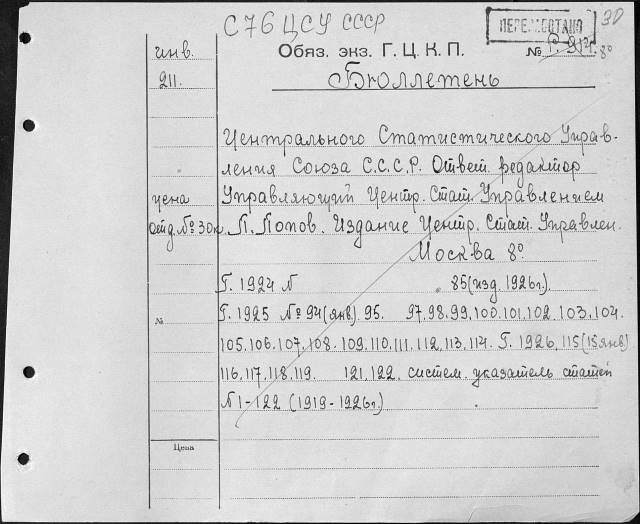 С76 ЦСУ СССР
ПЕРЕМЕЩЕНО
30
инв.
211.
Обяз. экз. Г. Ц. К. П.
№ Г. 914. 8°
Бюллетень
Центрального Статистического Управ-
ления Союза С.С.С.Р. Ответ. редактор
цена
Управляющий Центр. Стат. Управлением
отд. № 30к.
П. Попов. Издание Центр. Стат. Управлен.
Москва 8°
Г. 1924 N 85 (изд. 1926г.)
№
Г. 1925 № 94 (янв.) 95. 97, 98. 99, 100. 101. 102. 103. 104.
105. 106. 107. 108. 109. 110. 111. 112, 113, 114. Г. 1926, 115 (15 янв)
116, 117, 118, 119. 121, 122. систем. указатель статей
№ 1-122 (1919-1926г.)
Цена